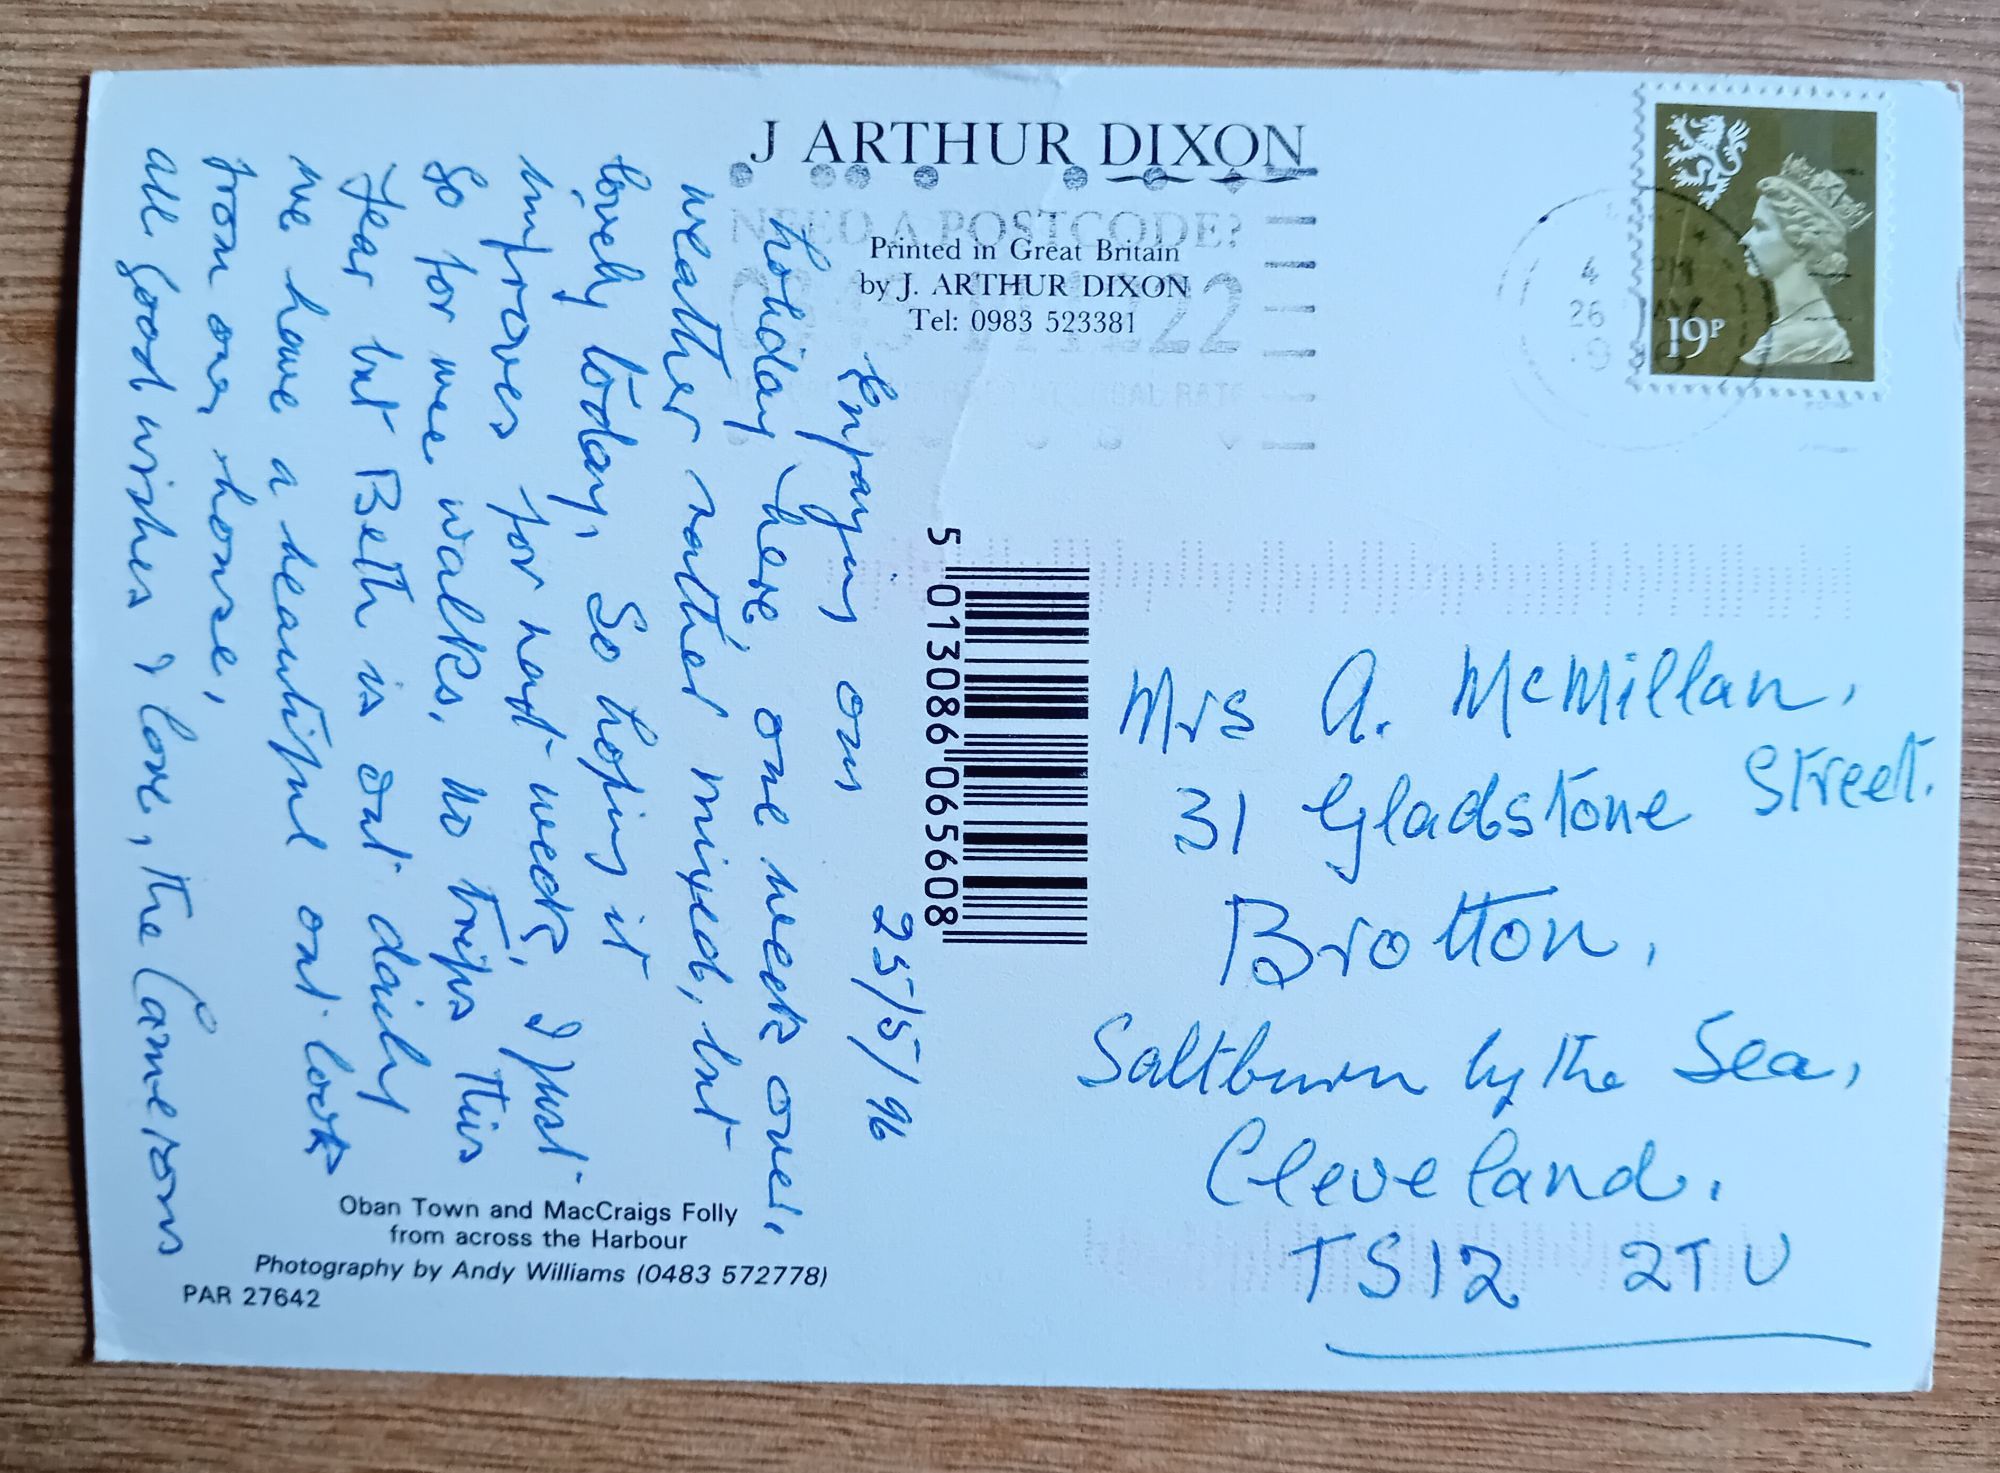 J ARTHUR DIXON
NEED A POSTCODE?
Printed in Great Britain
by J. ARTHUR DIXON
Tel: 0983 523381
19P
4 PM
26 MAY
25/5/96
Enjoying our
holiday here, one week over,
weather rather mixed, but
lovely today. So hoping it
improves for next week, I just
go for wee walks. No trips this
year but Beth is out daily
we have a beautiful out look
from our house,
all good wishes & love, the Camerons
5 013086 065608
Mrs A. McMillan,
31 Gladstone Street.
Brotton,
Saltburn by the Sea,
Cleveland.
TS12 2TU
Oban Town and MacCraigs Folly
from across the Harbour
Photography by Andy Williams (0483 572778)
PAR 27642